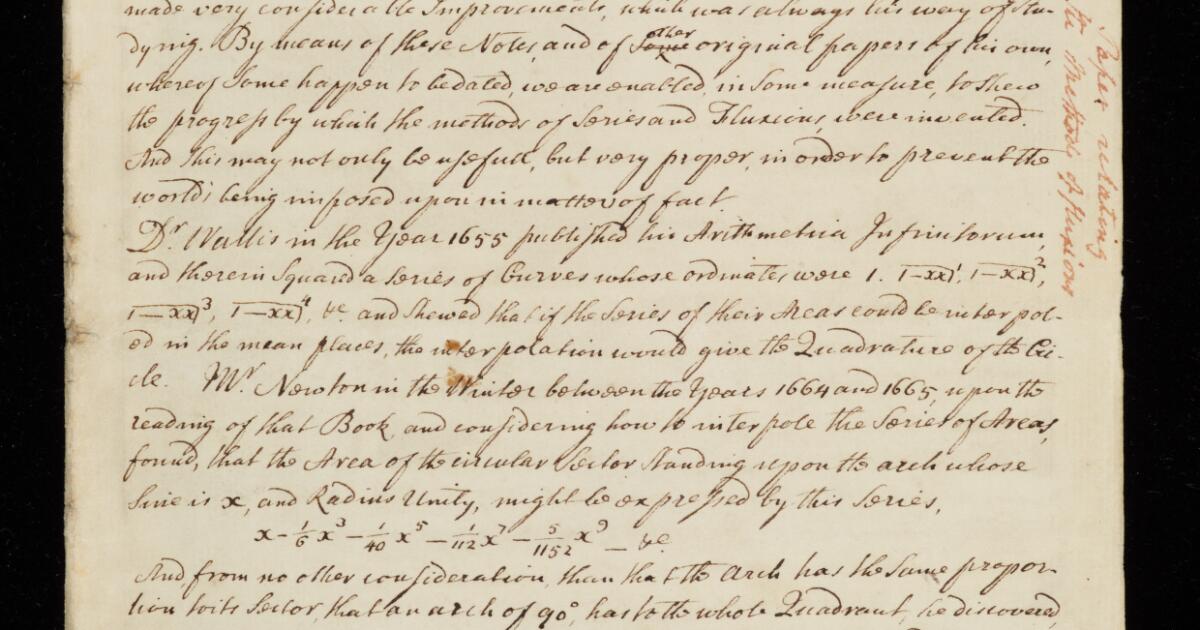 made very considerable Improvements, which was always his way of stu-
dying. By means of these Notes, and of Some other original papers of his own,
whereof Some happen to be dated, we are enabled, in Some measure, to shew
the progress by which the methods of Series and Fluxions, were invented.
And this may not only be usefull, but very proper, in order to prevent the
world's being imposed upon in matter of fact
Dr. Wallis in the Year 1655 published his Arithmetica Infinitorum,
and therein Squared a Series of Curves whose ordinates were 1. 1-xx)¹, 1-xx)²,
1-xx)³, 1-xx)⁴, &c. and shewed that if the Series of their Areas could be interpol-
ed in the mean places, the interpolation would give the Quadrature of the Cir-
cle. Mr. Newton in the Winter between the Years 1664 and 1665, upon the
reading of that Book, and considering how to interpole the Series of Areas,
found, that the Area of the circular Sector standing upon the arch whose
Sine is x, and Radius Unity, might be expressed by this Series,
x - 1/6 x³ - 1/40 x⁵ - 1/112 x⁷ - 5/1152 x⁹ - &c
And from no other consideration, than that the Arch has the Same propor-
tion to its Sector, that an arch of 90°, has to the whole Quadrant, he discovered,
Paper relating
to the Method of fluxions